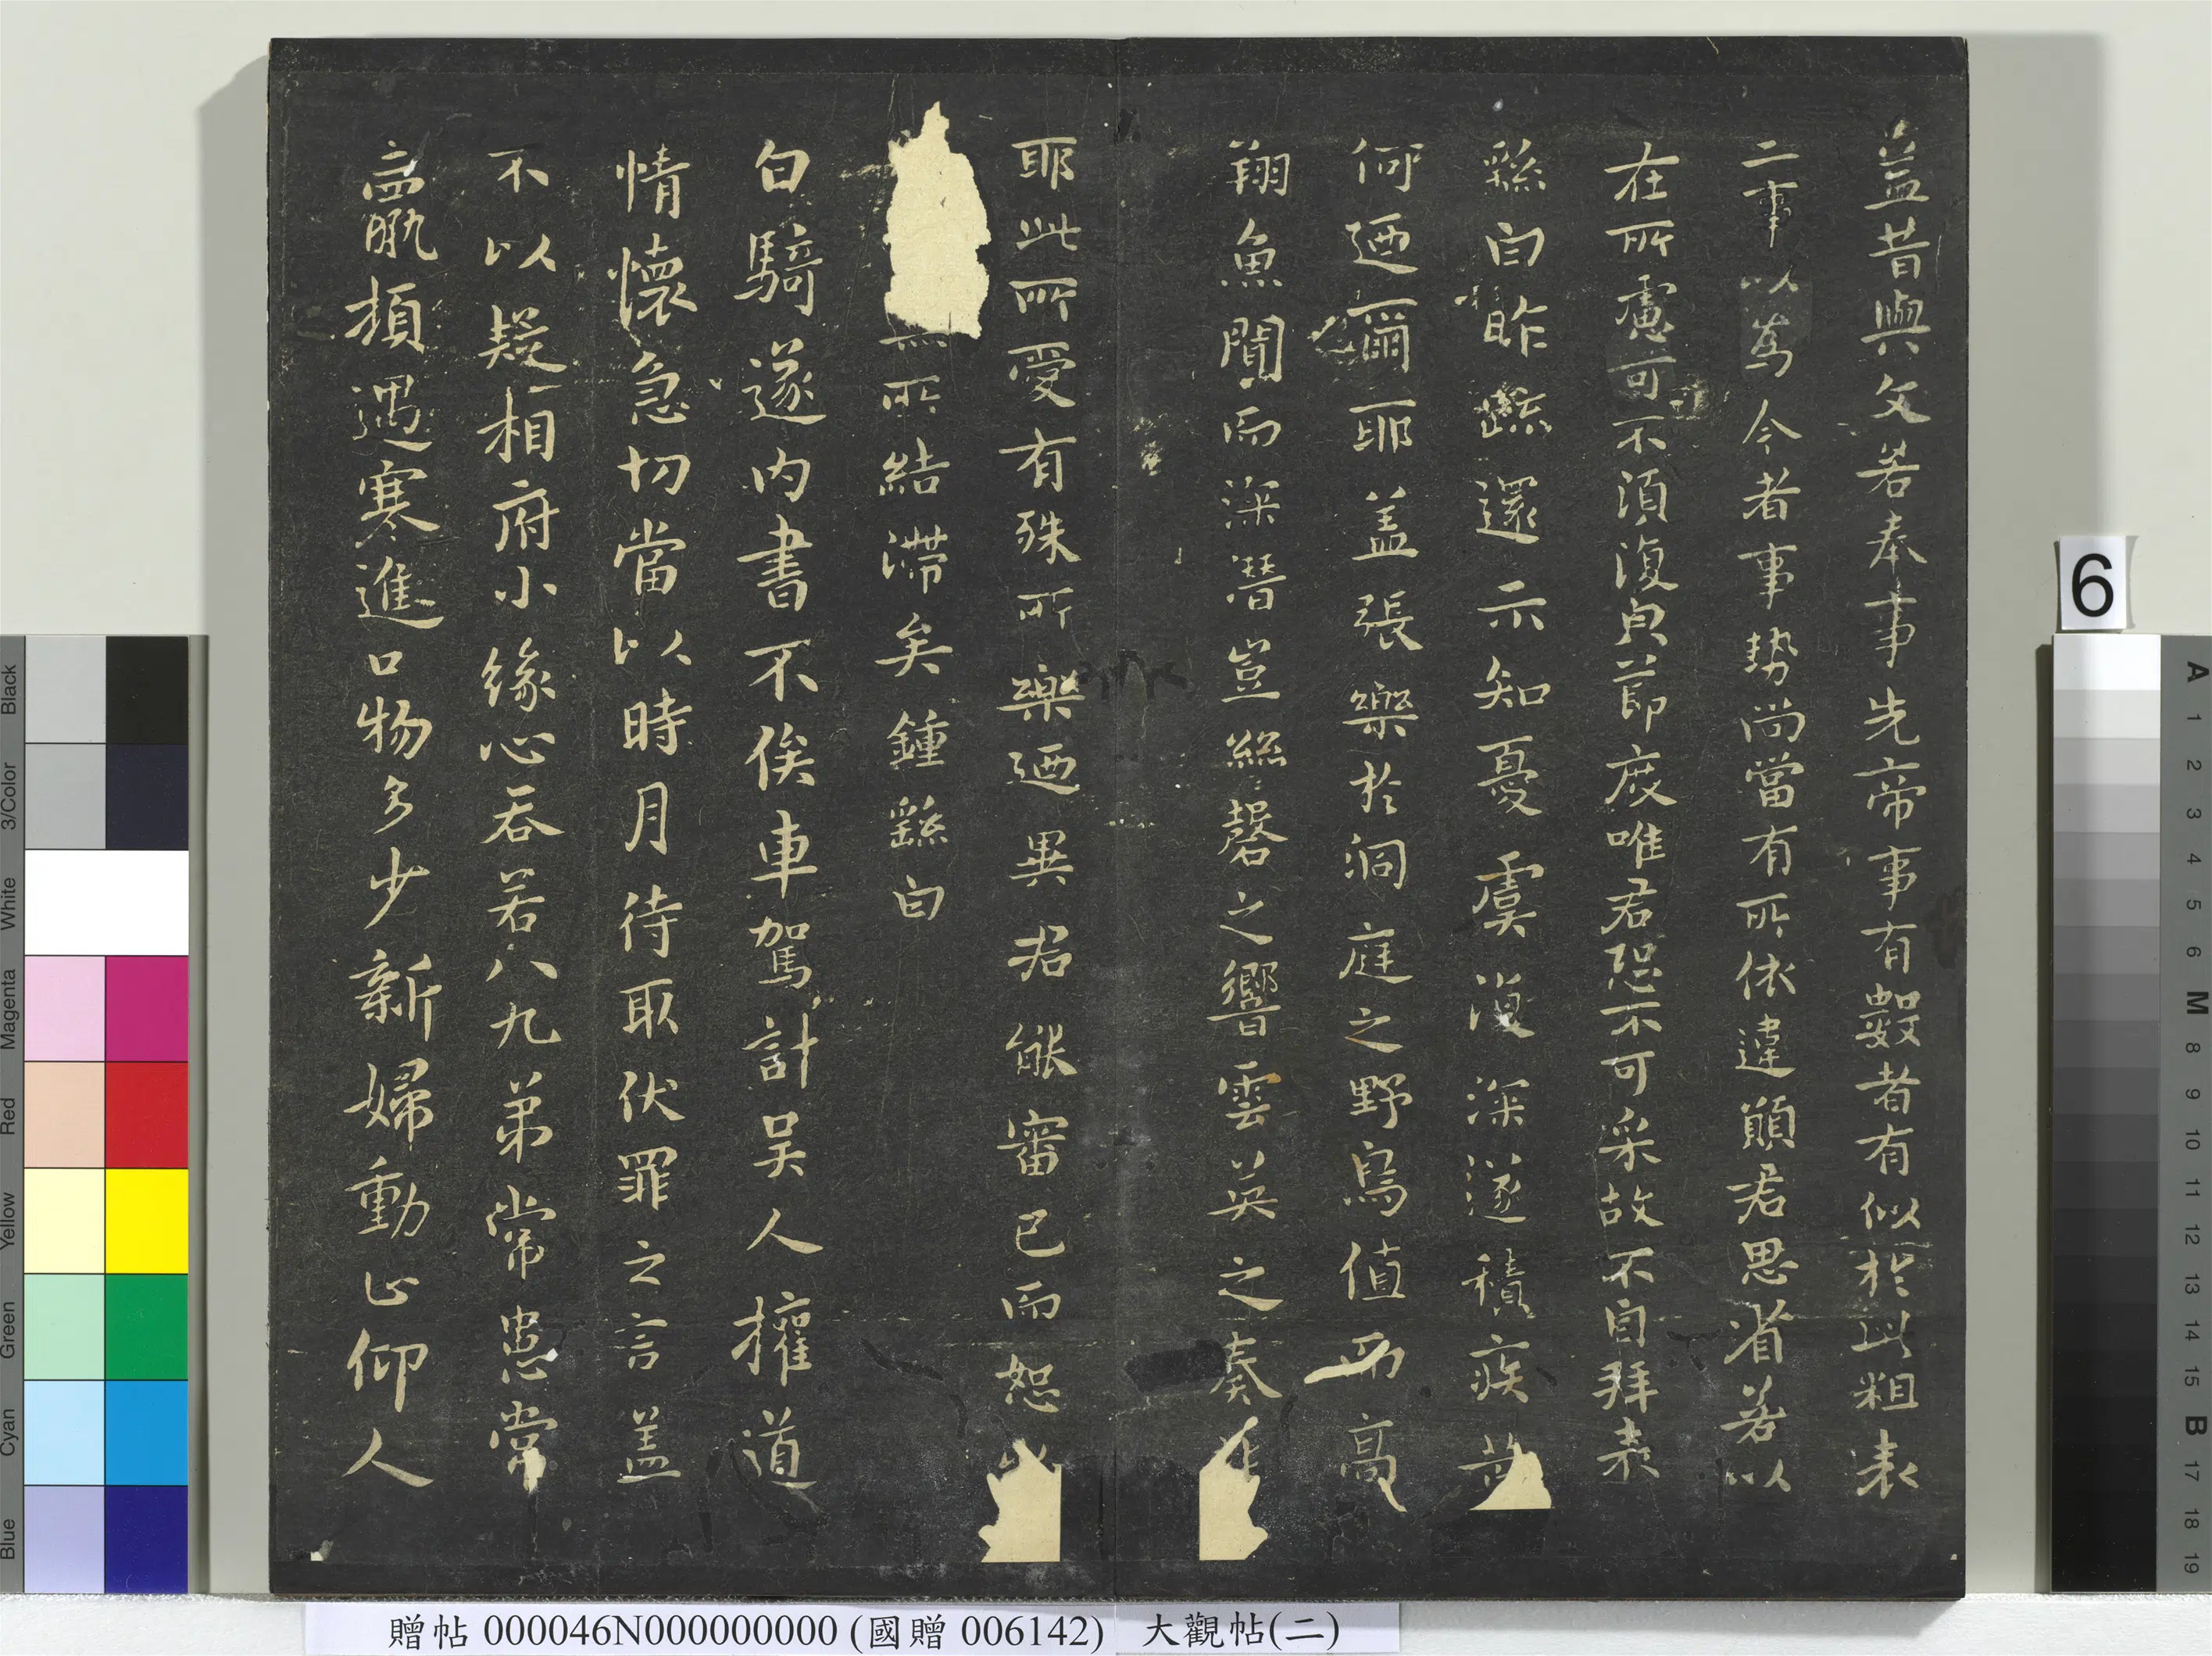 益昔與文若奉事先帝事有數者有似於此粗表
二事以為今者事勢尚當有所依違願君思省若以
在所慮可不須復皃節度唯君恐不可采故不自拜表
繇白昨疏還示知憂虞復深遂積疾苦
何迺爾耶蓋張樂於洞庭之野鳥值而高
翔魚聞而深潛豈絲磬之響雲英之奏非
耶此所愛有殊所樂迺異君能審己而恕
無所結滯矣鍾繇白
白騎遂內書不俟車駕計吳人權道
情懷急切當以時月待取伏罪之言蓋
不以疑相府小緣心吞若八九弟常患常
羸頓遇寒進口物多少新婦動止仰人
贈帖 000046N000000000 (國贈 006142) 大觀帖(二)
6
Black
3/Color
White
Magenta
Red
Yellow
Green
Cyan
Blue
A 1 2 3 4 5 6 M 8 9 10 11 12 13 14 15 B 17 18 19